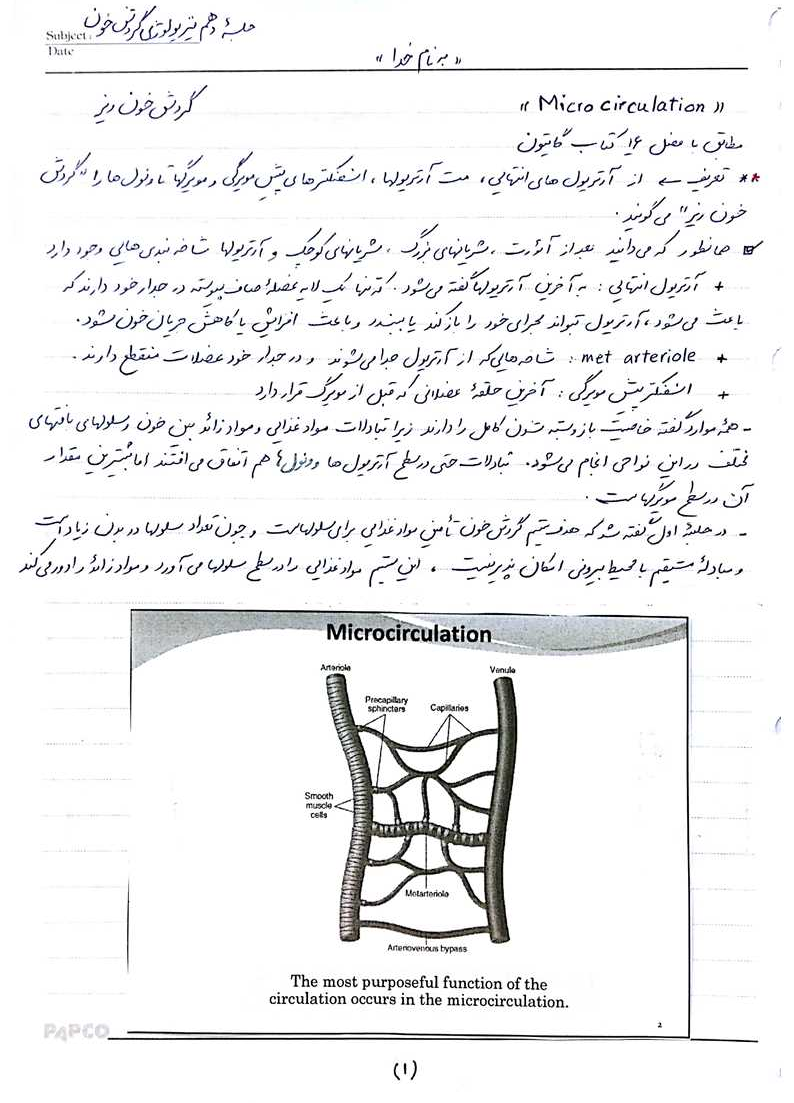 جلسهٔ دهم فیزیولوژی گردش خون
Subject:
Date
«به نام خدا»
«Microcirculation» گردش خون ریز
مطابق با فصل ۱۶ کتاب گایتون
** تعریف ← از آرتریول های انتهایی، مت آرتریولها، اسفنکترهای پیش مویرگی و مویرگها تا ونول ها را "گردش
خون ریز" می گویند.
همانطور که می دانید بعد از آئورت، شریانهای بزرگ، شریانهای کوچک و آرتریولها شاخه بندی هایی وجود دارد
+ آرتریول انتهایی: به آخرین آرتریولها گفته می شود. که تنها یک لایه عضلهٔ صاف پیوسته در جدار خود دارند که
باعث می شود، آرتریول بتواند مجرای خود را باز کند یا ببندد و باعث افزایش یا کاهش جریان خون شود.
+ met arteriole: شاخه هایی که از آرتریول جدا می شوند و در جدار خود عضلات منقطع دارند.
+ اسفنکتر پیش مویرگی: آخرین حلقهٔ عضلانی که قبل از مویرگ قرار دارد
- همهٔ موارد گفته خاصیت باز و بسته شدن کامل را دارند زیرا تبادلات مواد غذایی و مواد زائد بین خون و سلولهای بافتهای
مختلف در این نواحی انجام می شود. تبادلات حتی در سطح آرتریول ها و ونول ها هم اتفاق می افتند اما بیشترین مقدار
آن در سطح مویرگهاست.
- در جلسهٔ اول گفته شد که هدف سیستم گردش خون تأمین مواد غذایی برای سلولهاست و چون تعداد سلولها در بدن زیاد است
و مبادلهٔ مستقیم با محیط بیرونی امکان پذیر نیست، این سیستم مواد غذایی را در سطح سلولها می آورد و مواد زائد را دور می کند
Microcirculation
Arteriole
Venule
Precapillary
sphincters
Capillaries
Smooth
muscle
cells
Metarteriole
Arteriovenous bypass
The most purposeful function of the
circulation occurs in the microcirculation.
2
PAPCO
(۱)